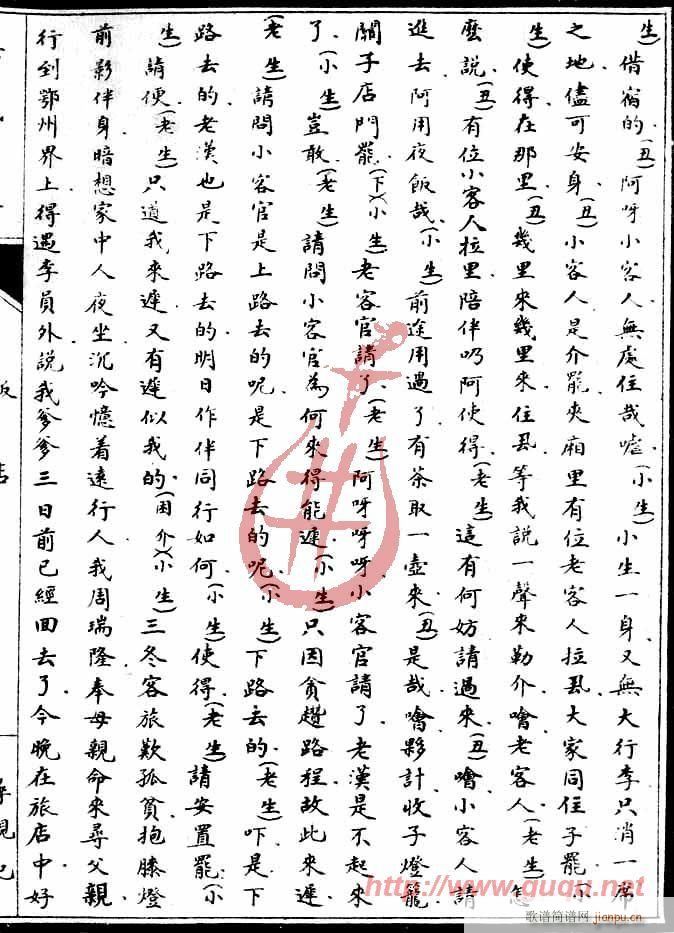 生)借宿的(丑)阿呀小客人無處住哉嘘(小生)小生一身又無大行李只消一席
之地儘可安身(丑)小客人是介罷夾廂里有位老客人拉厾大家同住子罷(小
生)使得在那里(丑)幾里來幾里來住厾等我說一聲來勒介噲老客人(老生)怎
麽說(丑)有位小客人拉里陪伴吤阿使得(老生)這有何妨請過來(丑)噲小客人請
進去阿用夜飯哉(小生)前途用過了有茶取一壺來(丑)是哉噲夥計收子燈籠
關子店門罷(下)(小生)老客官請了(老生)阿呀呀呀小客官請了老漢是不起來
了(小生)豈敢(老生)請問小客官為何來得能遲(小生)只因貪趲路程故此來遲
(老生)請問小客官是上路去的呢是下路去的呢(小生)下路去的(老生)吓是下
路去的老漢也是下路去的明日作伴同行如何(小生)使得(老生)請安置罷(小
生)請便(老生)只道我來遲又有遲似我的(困介)(小生)三冬客旅歎孤貧抱膝燈
前影伴身暗想家中人夜坐沉吟憶着遠行人我周瑞隆奉母親命來尋父親
行到鄂州界上得遇李員外說我爹爹三日前已經回去了今晚在旅店中好
http://www.guqu.net
歌谱简谱网
jianpu.cn